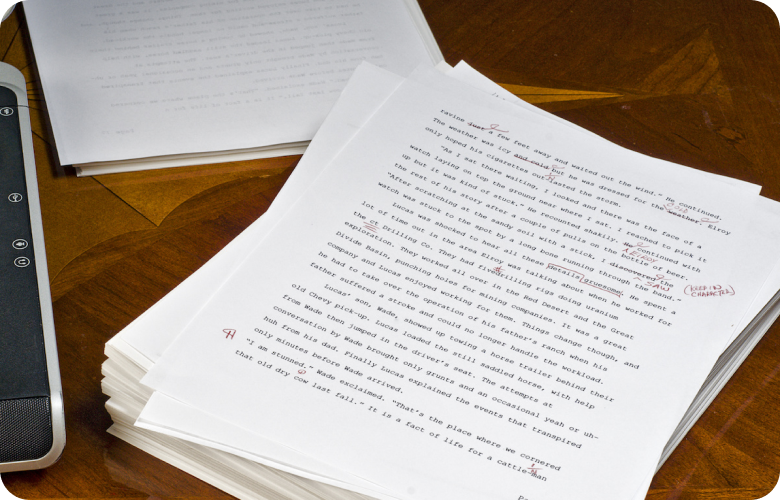 ravine just a few feet away and waited out the wind." He continued.
The weather was icy and cold but he was dressed for the weather. Elroy
only hoped his cigarettes out lasted the storm.
"As I sat there waiting, I looked and there was the face of a
watch laying on top the ground near where I sat. I reached to pick it
up but it was kind of stuck." He recounted shakily. He continued with
ELROY
the rest of his story after a couple of pulls on the bottle of beer.
"After scratching at the sandy soil with a stick, I discovered the
SAW
watch was stuck to the spot by a long bone running through the band."
(KEEP IN
CHARACTER)
Lucas was shocked to hear all these details gruesome. He spent a
lot of time out in the area Elroy was talking about when he worked for
the ct Drilling Co. They had five drilling rigs doing uranium
exploration. They worked all over in the Red Desert and the Great
Divide Basin, punching holes for mining companies. It was a great
company and Lucas enjoyed working for them. Things change though, and
he had to take over the operation of his father's ranch when his
father suffered a stroke and could no longer handle the workload.
Lucas' son, Wade, showed up towing a horse trailer behind their
old Chevy pick-up. Lucas loaded the still saddled horse, with help
from Wade then jumped in the driver's seat. The attempts at
conversation by Wade brought only grunts and an occasional yeah or uh-
huh from his dad. Finally Lucas explained the events that transpired
only minutes before Wade arrived.
"I am stunned." Wade exclaimed. "That's the place where we cornered
that old dry cow last fall." It is a fact of life for a cattle man